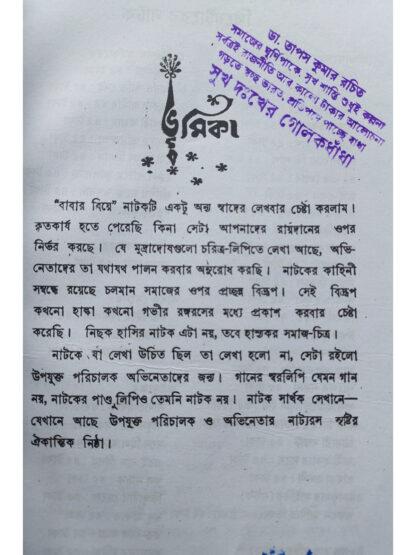 ডাঃ তাপস কুমার রচিত
সমাজের ঘূর্ণিপাকে, সুখ শান্তি শুধুই কল্পনা
সর্বত্রই রাজনীতি আর কালো টাকার আলোচনা
গড়তে স্বচ্ছ ভারত, প্রতিপদে পাচ্ছে বাধা
সুখ দুঃখের গোলকধাঁধা
ভূমিকা
“বাবার বিয়ে” নাটকটি একটু অন্য স্বাদের লেখবার চেষ্টা করলাম।
কৃতকার্য হতে পেরেছি কিনা সেটা আপনাদের রায়দানের ওপর
নির্ভর করছে। যে মুদ্রাদোষগুলো চরিত্র-লিপিতে লেখা আছে, অভি-
নেতাদের তা যথাযথ পালন করবার অনুরোধ করছি। নাটকের কাহিনী
সম্বন্ধে রয়েছে চলমান সমাজের ওপর প্রচ্ছন্ন বিদ্রূপ। সেই বিদ্রূপ
কখনো হাল্কা কখনো গভীর রঙ্গরসের মধ্যে প্রকাশ করবার চেষ্টা
করেছি। নিছক হাসির নাটক এটা নয়, তবে হাস্যকর সমাজ-চিত্র।
নাটকে যা লেখা উচিত ছিল তা লেখা হলো না, সেটা রইলো
উপযুক্ত পরিচালক অভিনেতাদের জন্য। গানের স্বরলিপি যেমন গান
নয়, নাটকের পাণ্ডুলিপিও তেমনি নাটক নয়। নাটক সার্থক সেখানে—
যেখানে আছে উপযুক্ত পরিচালক ও অভিনেতার নাট্যরস সৃষ্টির
ঐকান্তিক নিষ্ঠা।